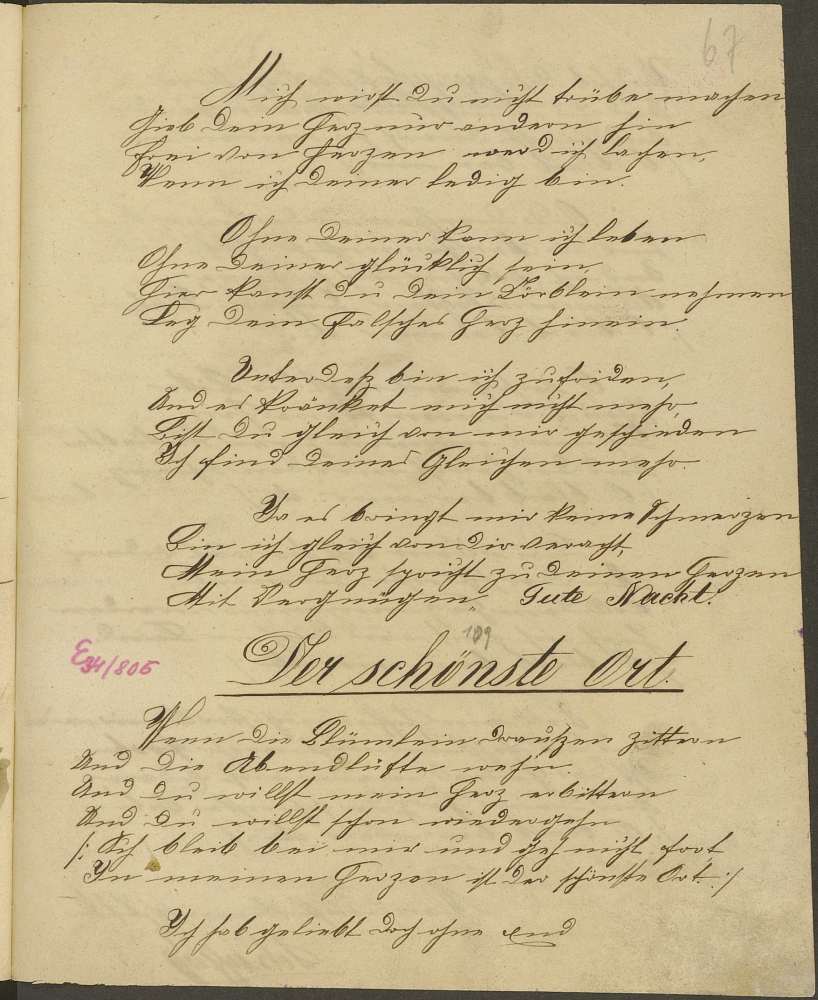 67
Mich wirst Du nicht trübe machen
Gieb Dein Herz nur andern hin
Frei von Herzen werd ich lachen,
Wenn ich Deiner ledig bin.
Ohne Deiner kann ich leben
Ohne Deiner glücklich sein,
Hier kanst Du Dein Körblein nehmen
Leg Dein falsches Herz hinein.
Unterdeß bin ich zufriden,
Und es kränket mich nicht mehr,
Bist Du gleich von mir geschieden
Ich find Deines Gleichen mehr.
Ja es bringt mir keine Schmerzen
Bin ich gleich von Dir veracht,
Mein Herz spricht zu Deinem Herzen
Mit Vergnügen „Gute Nacht."
109
E 34/805
Der schönste Ort.
Wenn die Blümlein draußen zittern
Und die Abendlüfte wehn.
Und du willst mein Herz erbittern
Und du willst schon wiedergehn
/: Ach bleib bei mir und geh nicht fort
In meinem Herzen ist der schönste Ort. :/
Ich hab geliebt doch ohne End